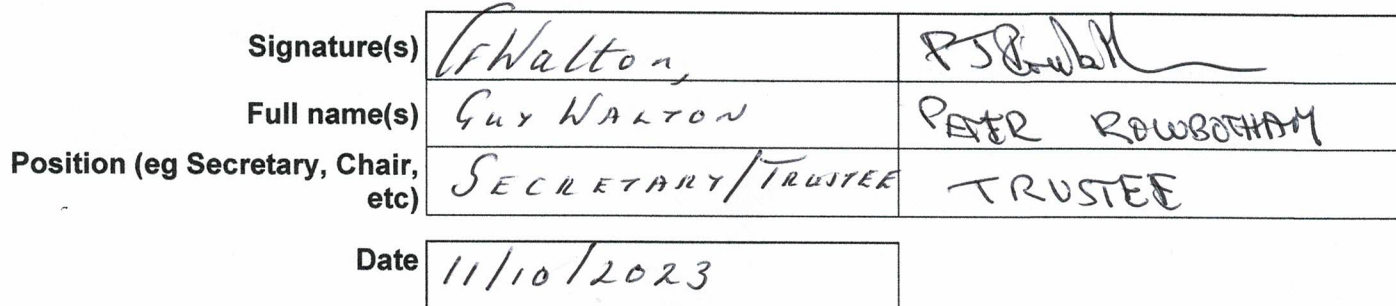 Signature(s) GWalton, 
Full name(s) GUY WALTON PETER ROWBOTHAM
Position (eg Secretary, Chair,
etc) SECRETARY/TRUSTEE TRUSTEE
Date 11/10/2023